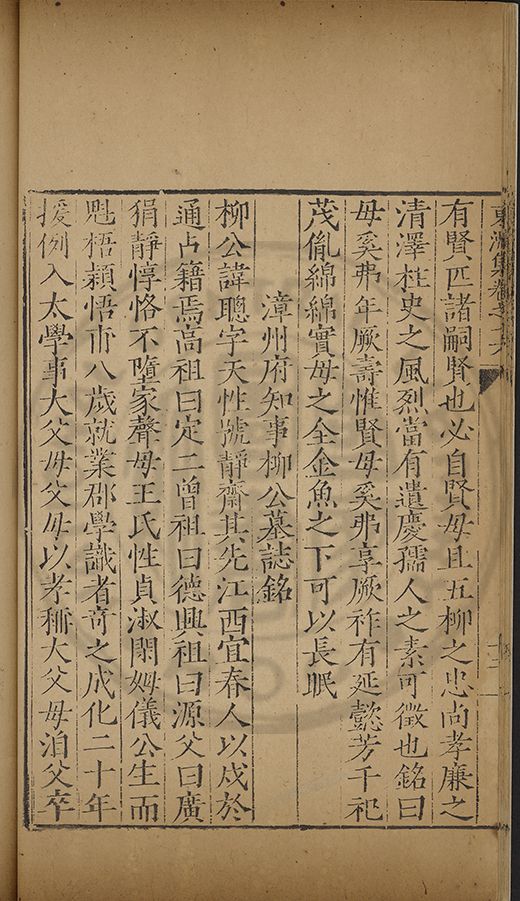 有賢匹諸嗣賢也必自賢母且五柳之忠尚孝廉之
清澤柱史之風烈當有遺慶孺人之素可徵也銘曰
母奚弗年厥壽惟賢母奚弗享厥祚有延懿芳千祀
茂胤綿綿實母之全金魚之下可以長眠
漳州府知事柳公墓誌銘
柳公諱聰字天性號靜齋其先江西宜春人以戍於
通占籍焉高祖曰定二曾祖曰德興祖曰源父曰廣
狷靜惇恪不墮家聲母王氏性貞淑閑姆儀公生而
魁梧穎悟甫八歲就業郡學識者竒之成化二十年
援例入太學事大父母父母以孝稱大父母洎父卒